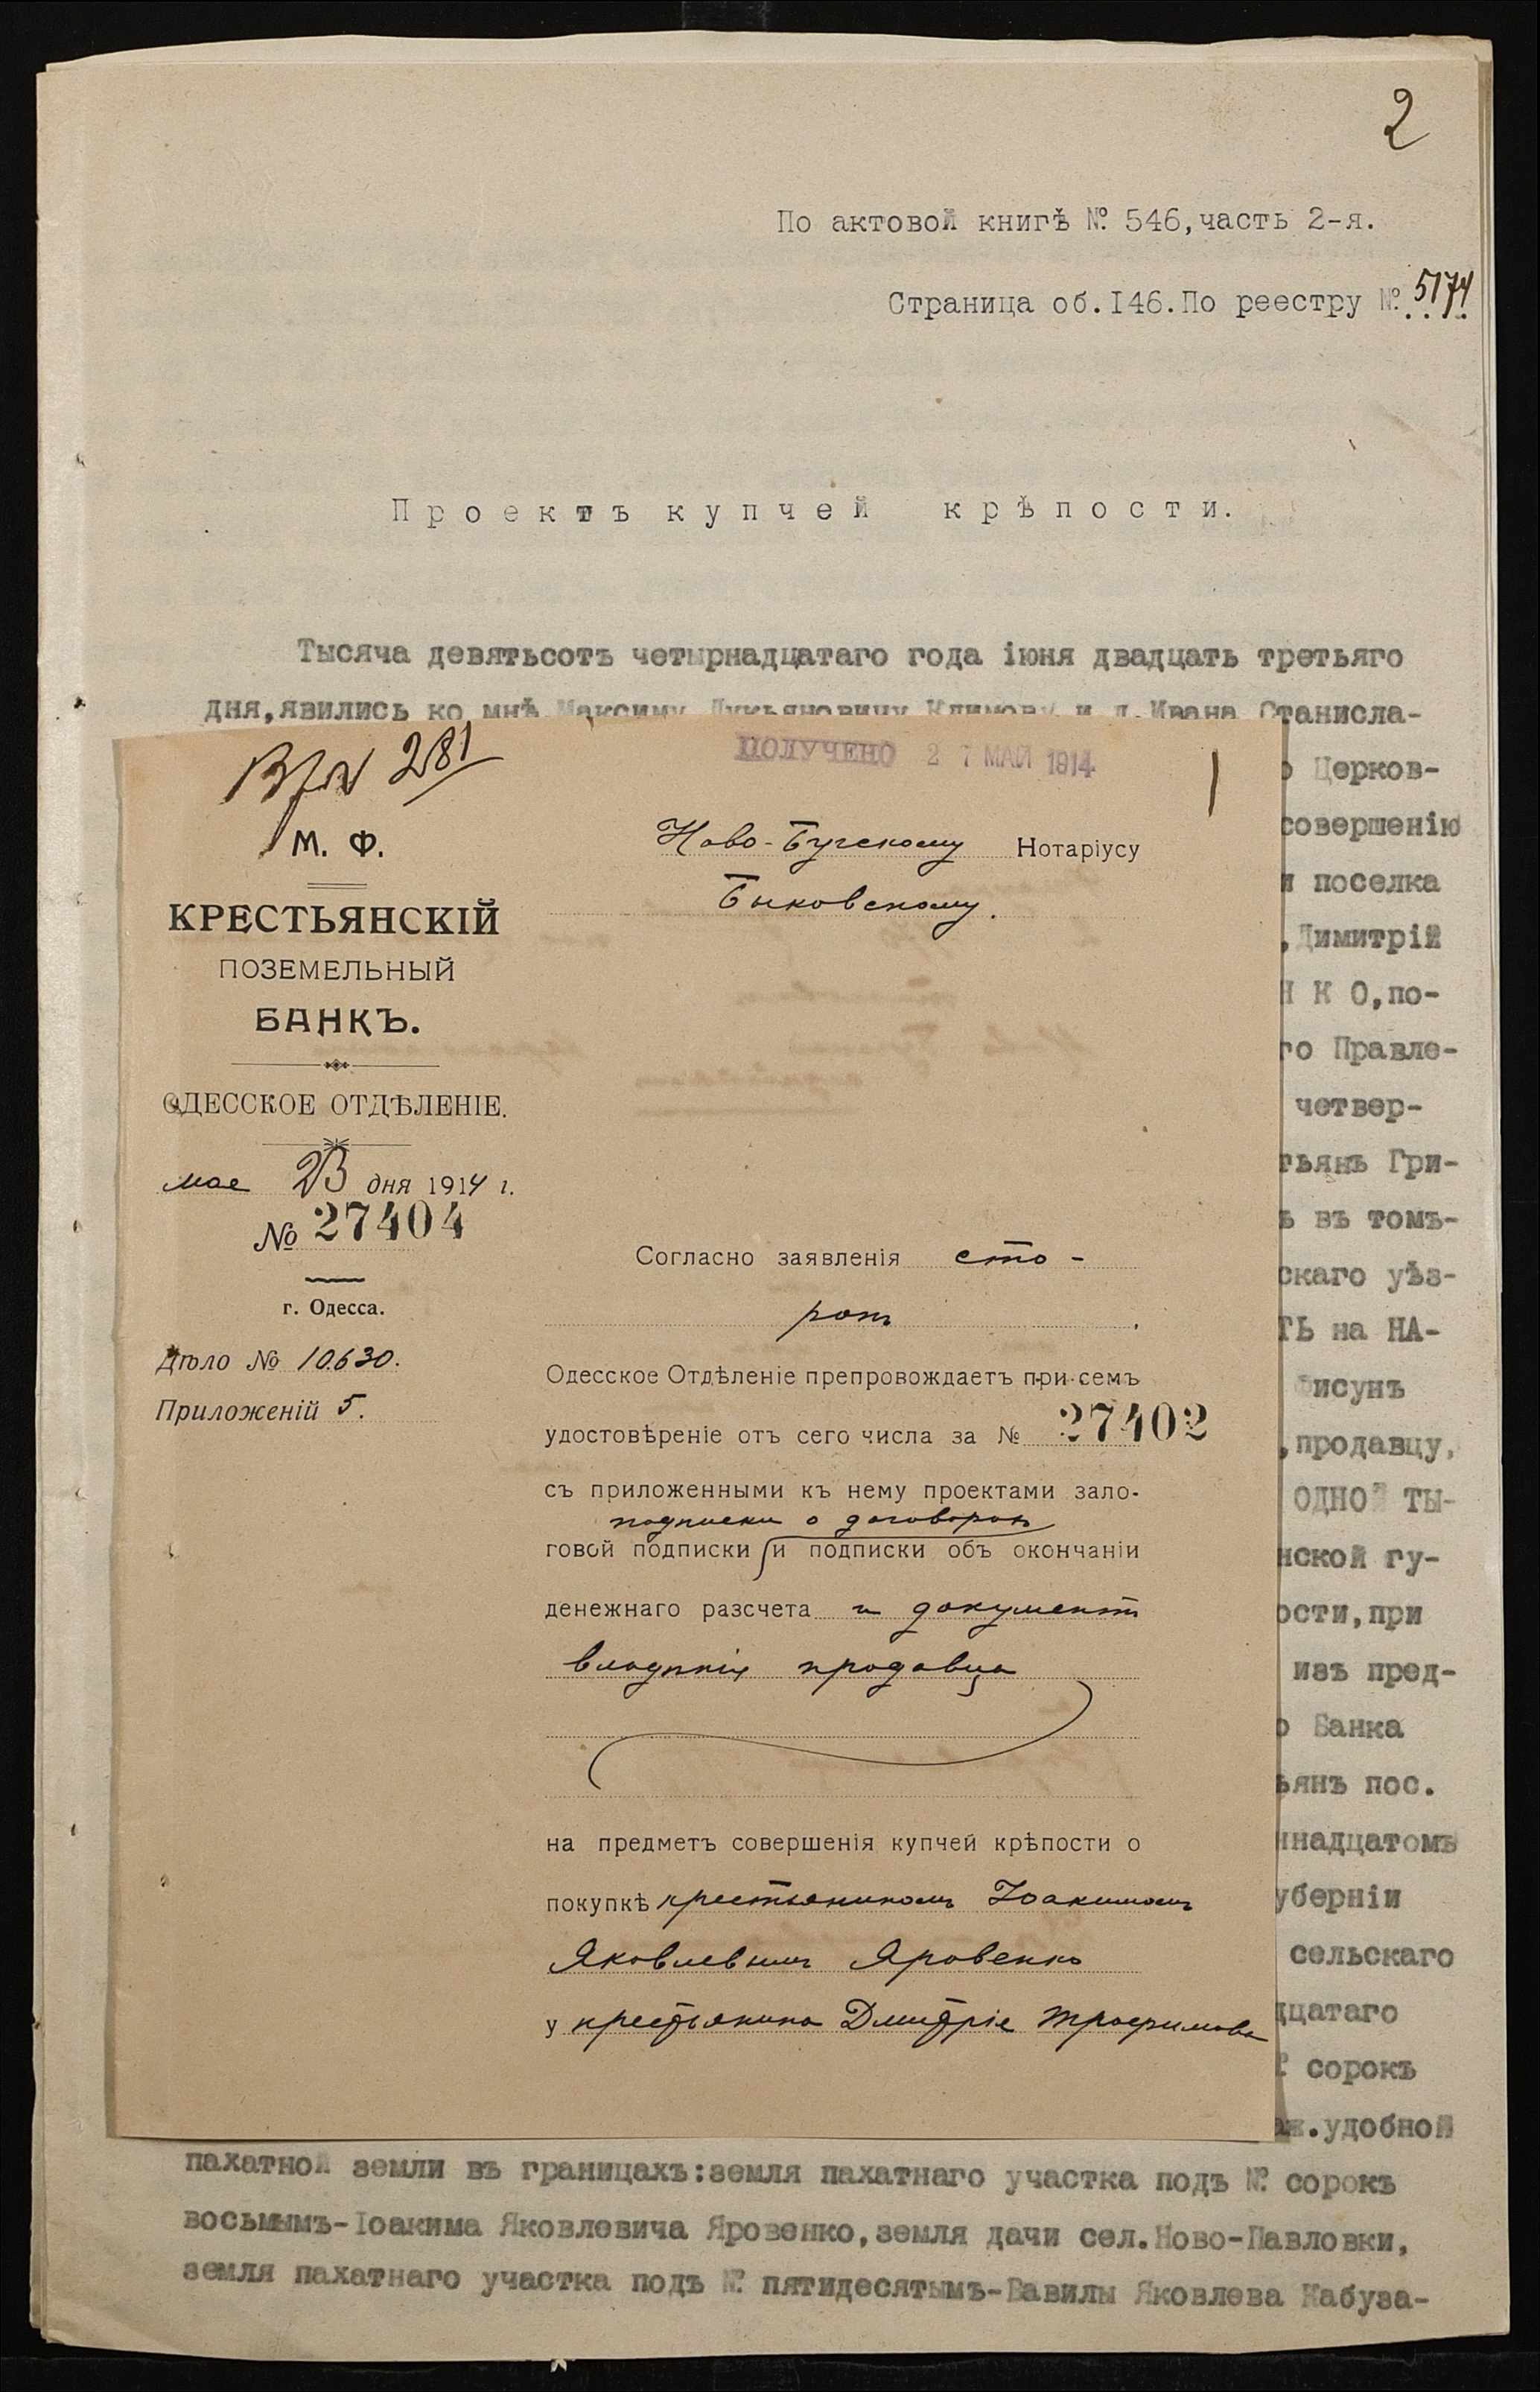 2
По актовой книгѣ № 546, часть 2-я.
Страница об. I46. По реестру № 5174
Проектъ купчей крѣпости.
Тысяча девятьсотъ четырнадцатаго года іюня двадцать третьяго
дня, явились ко мнѣ Максиму Лукьяновичу Климову и.д. Ивана Станисла-
Церков-
совершенію
поселка
, Димитрій
Н К О, по-
го Правле-
четвер-
тьянъ Гри-
въ томъ-
скаго уѣз-
ТЬ на НА-
Фисунъ
, продавцу,
ОДНОЙ ТЫ-
нской гу-
ости, при
изъ пред-
Банка
ьянъ пос.
ннадцатомъ
уберніи
сельскаго
дцатаго
сорокъ
аж. удобной
пахатной земли въ границахъ: земля пахатнаго участка подъ № сорокъ
восьмымъ-Іоакима Яковлевича Яровенко, земля дачи сел. Ново-Павловки,
земля пахатнаго участка подъ № пятидесятымъ-Вавилы Яковлева Кабуза-
281
М. Ф.
КРЕСТЬЯНСКІЙ
ПОЗЕМЕЛЬНЫЙ
БАНКЪ.
ОДЕССКОЕ ОТДѢЛЕНІЕ.
мая 23 дня 1914 г.
№ 27404
г. Одесса.
Дѣло № 10630.
Приложеній 5.
ПОЛУЧЕНО 27 МАЙ 1914
1
Ново-Бугскому Нотаріусу
Быковскому.
Согласно заявленія сто-
ронъ.
Одесское Отдѣленіе препровождаетъ при семъ
удостовѣреніе отъ сего числа за № 27402
съ приложенными къ нему проектами зало-
подписки о договорѣ
говой подписки и подписки объ окончаніи
денежнаго разсчета и документъ
владѣнія продавца
на предметъ совершенія купчей крѣпости о
покупкѣ крестьяниномъ Іоакимомъ
Яковлевымъ Яровенко
у крестьянина Дмитрія Трофимова